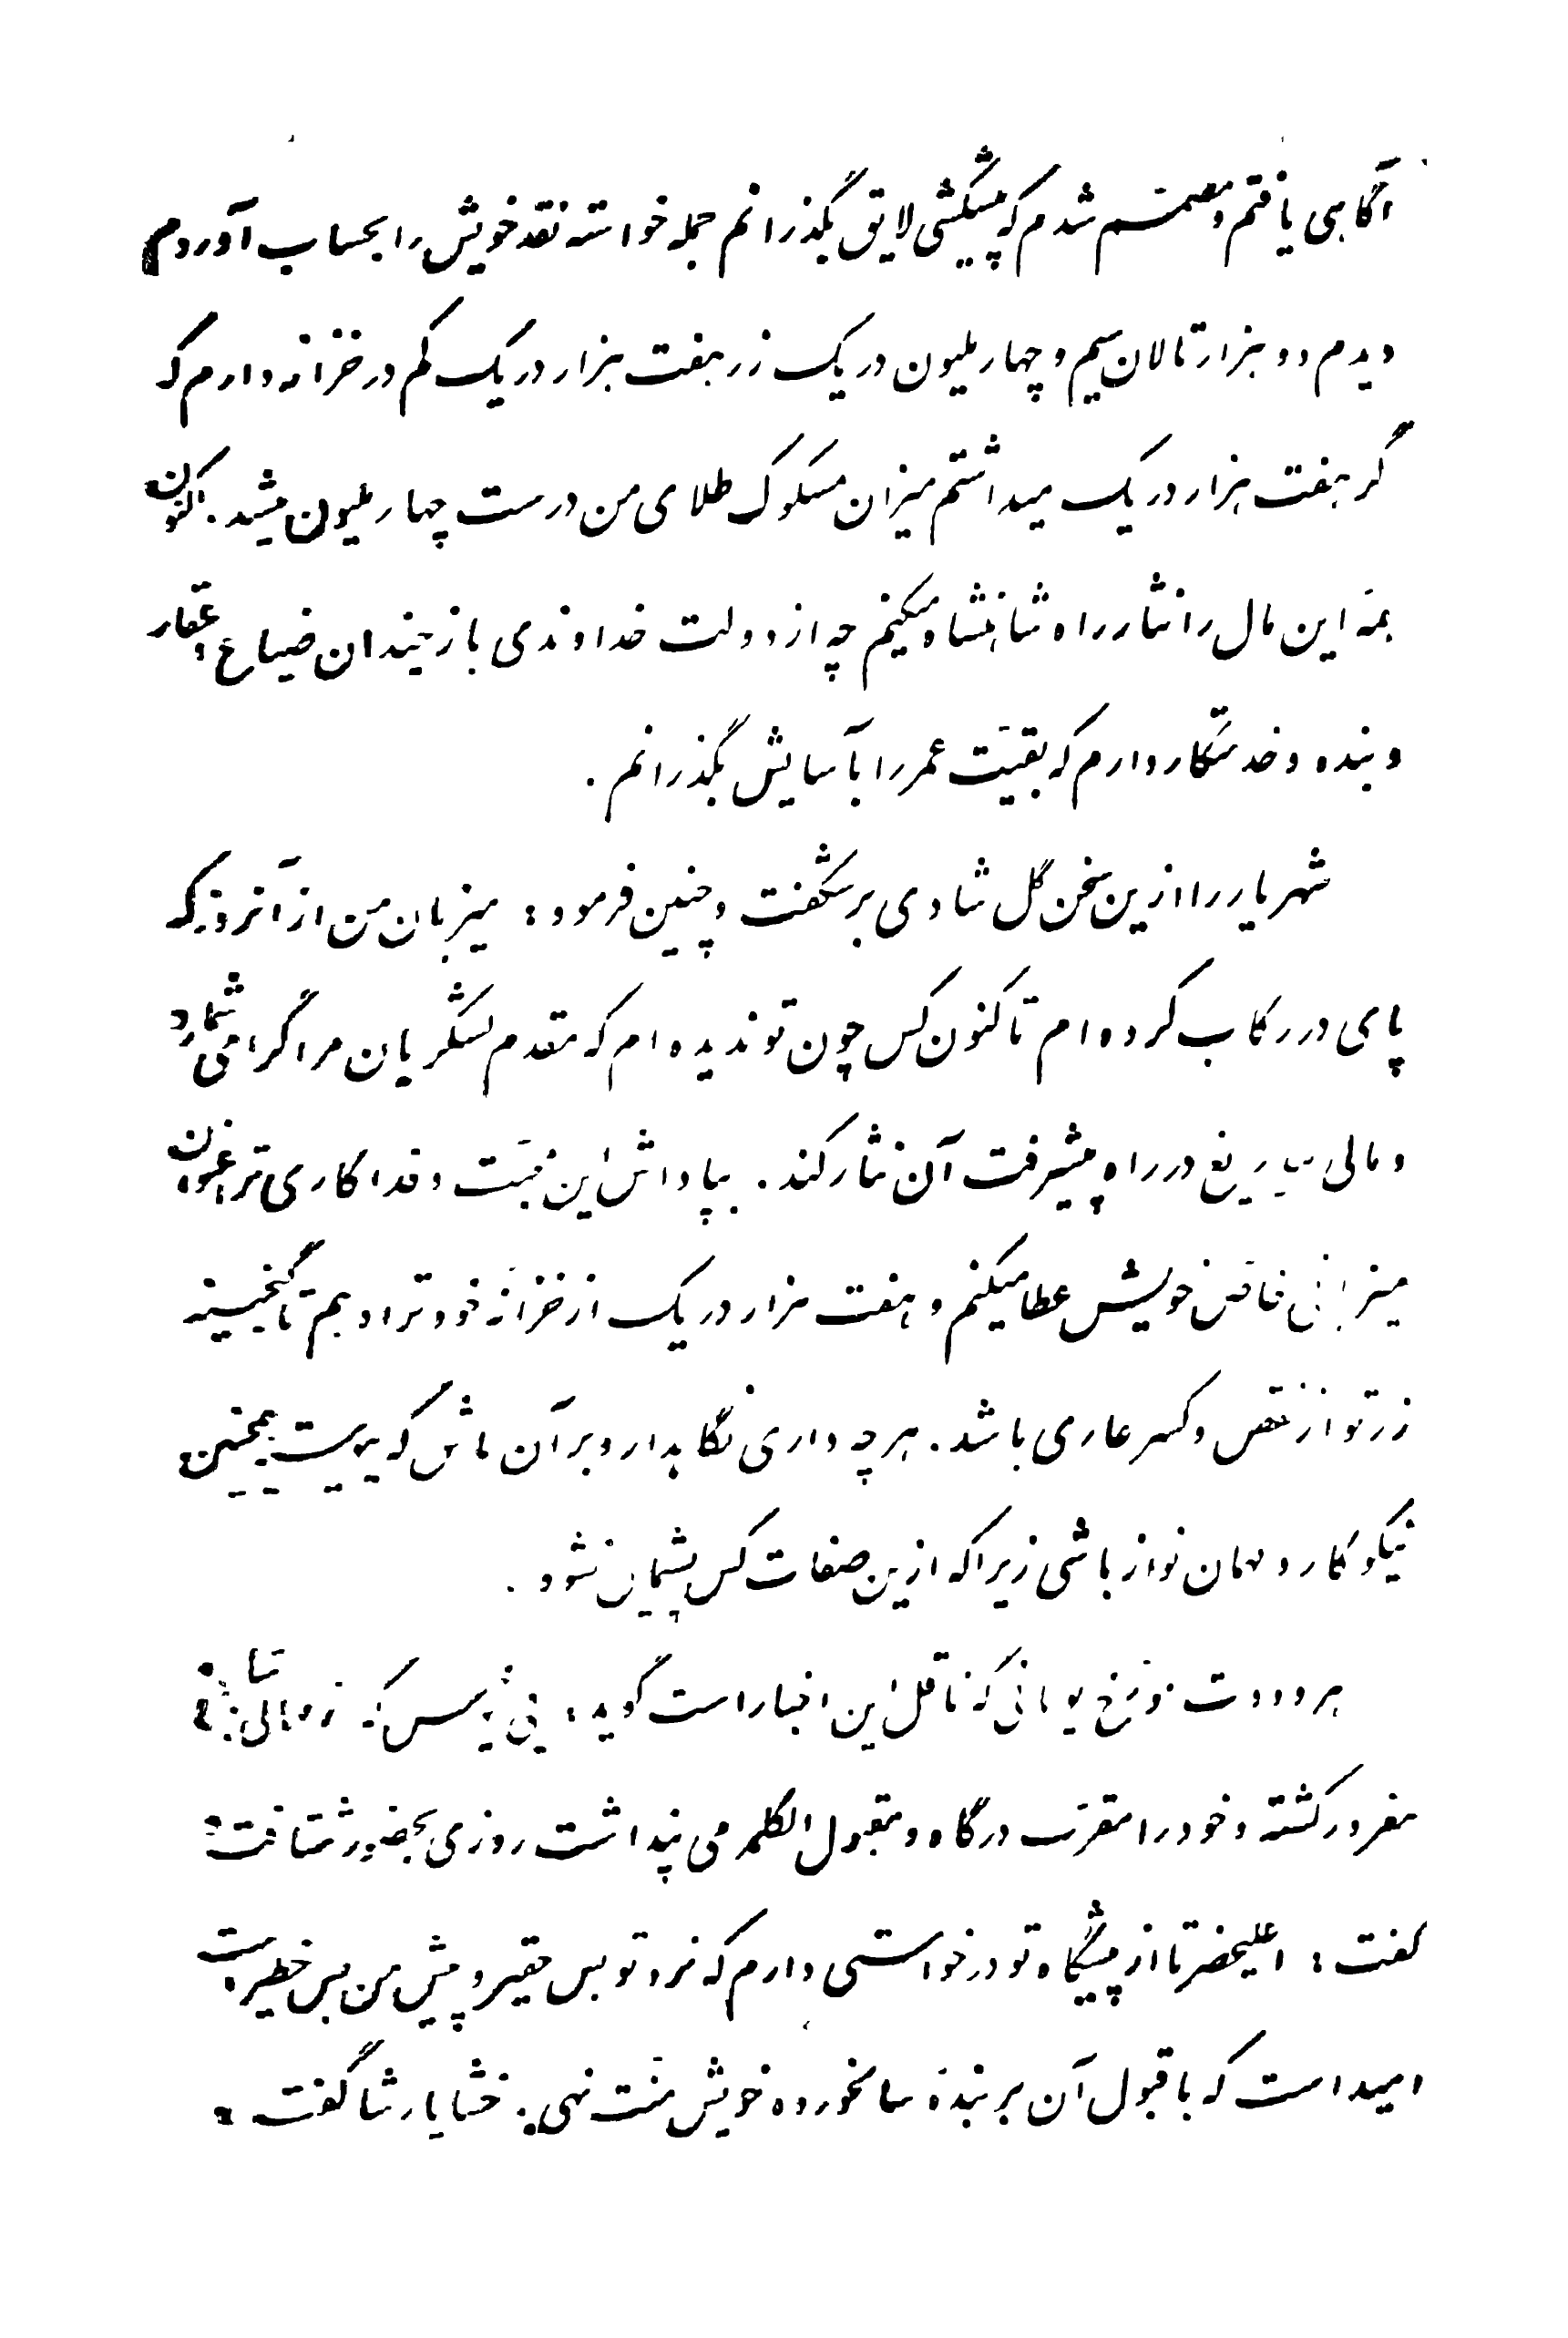 آگاهی یافتم و مصمّم شدم که پیشکشی لایق بگذرانم جمله خواسته نقد خویش را بحساب آوردم
دیدم دو هزار تالان سیم و چهار ملیون دریک زر هفت هزار دریک کم در خزانه دارم که
گر هفت هزار دریک میداشتم میزان مسکوک طلای من درست چهار ملیون میشد. اکنون
همه این مال را نثار راه شاهنشاه میکنم چه از دولت خداوندی باز چندان ضیاع و عقار
و بنده و خدمتکار دارم که بقیّت عمر را بآسایش بگذرانم.
شهریار را ازین سخن گل شادی برشگفت و چنین فرمود: میزبان من از آنروز که
پای در رکاب کرده ام تاکنون کس چون تو ندیده ام که مقدم لشگریان مرا گرامی شمارد
و مالی بیدریغ در راه پیشرفت آن نثار کند. بپاداش این نیّت و فداکاری ترا عنوان
میزبانی خاص خویش عطا میکنم و هفت هزار دریک از خزانه خود ترا دهم تا گنجینه
زر تو از نقص و کسر عاری باشد. هر چه داری نگاهدار و بر آن باش که پیوسته همچنین
نیکوکار و مهمان نواز باشی زیرا که ازین صفات کس پشیمان نشود.
هرودوت مورّخ یونانی که ناقل این اخبار است گوید: پی ثیس که
مغرور گشته و خود را مقرّب درگاه و مقبول الکلمه می پنداشت روزی بحضور شتافت و
گفت: اعلیحضرتا از پیشگاه تو درخواستی دارم که نزد تو بس حقیر و پیش من بس خطیر است
امید است که با قبول آن بر بندهٔ سالخورده خویش منّت نهی. خشایارشا گفت: